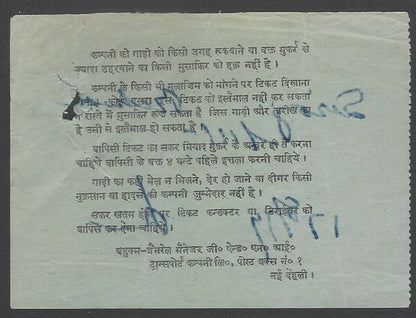 कम्पनी की गाड़ी को किसी जगह रुकवाने या वक्त मुकर्रर से
ज्यादा ठहरवाने का किसी मुसाफ़िर को हक़ नहीं है।
कम्पनी के किसी भी मुलाज़िम को मांगने पर टिकट दिखाना
टिकट को इस्तेमाल नहीं कर सकता
न रास्ते में मुसाफ़िर सकता है जिस गाड़ी और तारीख
है उसी में इस्तेमाल हो सकता है
वापिसी टिकट का सफर मियाद मुकर्रर के अन्दर ही तै करना
चाहिये वापिसी के वक्त ४ घण्टे पहिले इत्तला करनी चाहिये।
गाड़ी का मेल न मिलने, देर हो जाने या दीगर किसी
नुक़सान या हादसे की कम्पनी जुम्मेदार नहीं है।
सफर खतम टिकट कन्डक्टर या
वापिस कर देना चाहिये।
बहुक्म-जैनरेल मैनेजर जी० ऐन्ड० एन० आई०
ट्रान्सपोर्ट कम्पनी लि०, पोस्ट बक्स नं० १
नई देहली।